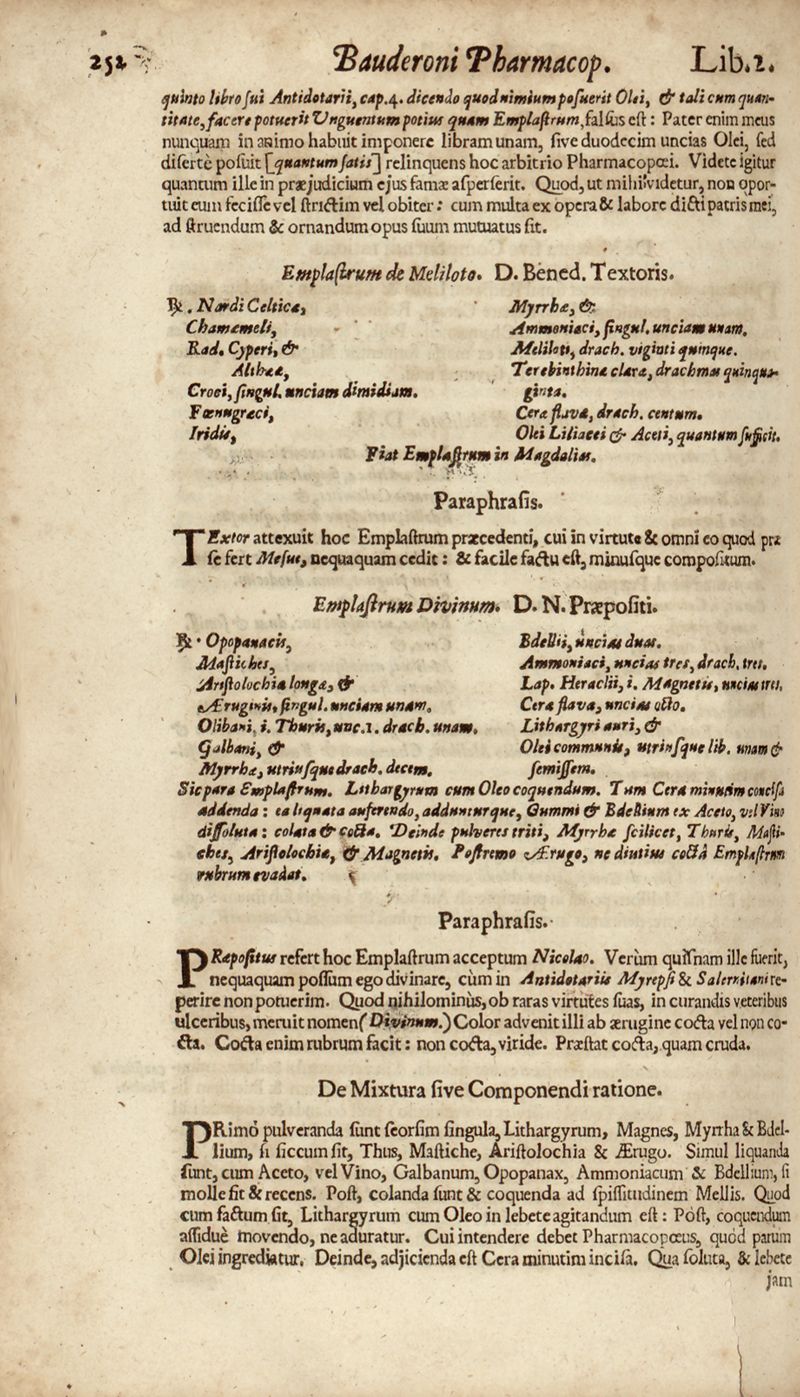 252 Bauderoni Pharmacop. Lib.2.
quinto libro sui Antidotarii, cap.4. dicendo quod nimium posuerit Olei, & tali cum quan-
titate, facere potuerit Unguentum potius quam Emplastrum, falsus est: Pater enim meus
nunquam in animo habuit imponere libram unam, sive duodecim uncias Olei, sed
disertè posuit [quantum satis] relinquens hoc arbitrio Pharmacopœi. Videte igitur
quantum ille in præjudicium ejus famæ asperserit. Quod, ut mihi videtur, non opor-
tuit eum fecisse vel strictim vel obiter: cum multa ex opera & labore dicti patris mei,
ad struendum & ornandum opus suum mutuatus sit.
Emplastrum de Meliloto. D. Bened. Textoris.
℞. Nardi Celticæ,
Chamæmeli,
Rad. Cyperi, &
Altheæ,
Croci, singul. unciam dimidiam.
Fœnugræci,
Iridis,
Myrrhæ, &
Ammoniaci, singul. unciam unam.
Meliloti, drach. viginti quinque.
Terebinthinæ claræ, drachmas quinqua-
ginta.
Ceræ flavæ, drach. centum.
Olei Liliacei & Aceti, quantum sufficit.
Fiat Emplastrum in Magdalias.
Paraphrasis.
TExtor attexuit hoc Emplastrum præcedenti, cui in virtute & omni eo quod præ
se fert Mesue, nequaquam cedit: & facile factu est, minusque compositum.
Emplastrum Divinum. D. N. Præpositi.
℞. Opopanacis,
Mastiches,
Aristolochiæ longæ, &
Æruginis, singul. unciam unam.
Olibani, i. Thuris, unc.1. drach. unam.
Galbani, &
Myrrhæ, utriusque drach. decem.
Bdellii, uncias duas.
Ammoniaci, uncias tres, drach. tres.
Lap. Heraclii, i. Magnetis, uncias tres,
Ceræ flavæ, uncias octo.
Lithargyri auri, &
Olei communis, utriusque lib. unam &
semissem.
Sic para Emplastrum. Lithargyrum cum Oleo coquendum. Tum Cera minutim concisa
addenda: ea liquata auferendo, adduntur que, Gummi & Bdellium ex Aceto, vel Vino
dissoluta: colata & cocta. Deinde pulveres triti, Myrrhæ scilicet, Thuris, Masti-
ches, Aristolochiæ, & Magnetis. Postremo Ærugo, ne diutius coctâ Emplastrum
rubrum evadat.
Paraphrasis.
PRæpositus refert hoc Emplastrum acceptum Nicolao. Verùm quisnam ille fuerit,
nequaquam possum ego divinare, cùm in Antidotariis Myrepsi & Salernitani re-
perire non potuerim. Quod nihilominùs, ob raras virtutes suas, in curandis veteribus
ulceribus, meruit nomen (Divinum.) Color advenit illi ab ærugine cocta vel non co-
cta. Cocta enim rubrum facit: non cocta, viride. Præstat cocta, quam cruda.
De Mixtura sive Componendi ratione.
PRimó pulveranda sunt seorsim singula, Lithargyrum, Magnes, Myrrha & Bdel-
lium, si siccum sit, Thus, Mastiche, Aristolochia & Ærugo. Simul liquanda
sunt, cum Aceto, vel Vino, Galbanum, Opopanax, Ammoniacum & Bdellium, si
molle sit & recens. Post, colanda sunt & coquenda ad spissitudinem Mellis. Quod
cum factum sit, Lithargyrum cum Oleo in lebete agitandum est: Póst, coquendum
assiduè movendo, ne aduratur. Cui intendere debet Pharmacopœus, quód parùm
Olei ingrediatur. Deinde, adjicienda est Cera minutim incisa. Qua soluta, & lebete
jam